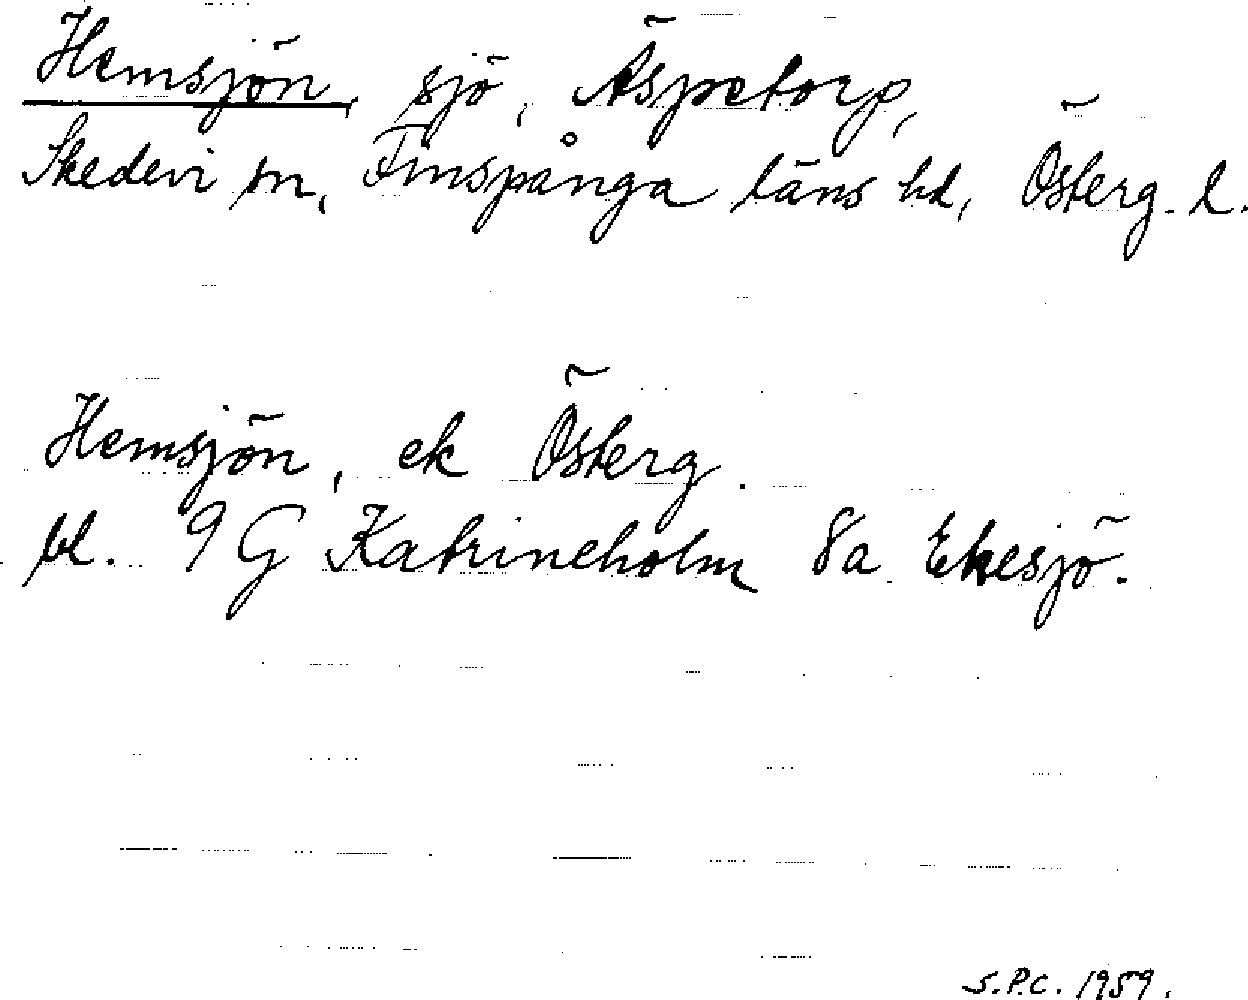 Hemsjön, sjö, Äspetorp,
Skedevi sn, Finspånga läns hd, Österg. l.
Hemsjön, ek Österg.
bl. 9 G Katrineholm 8a Ekesjö.
S.P.C. 1959.